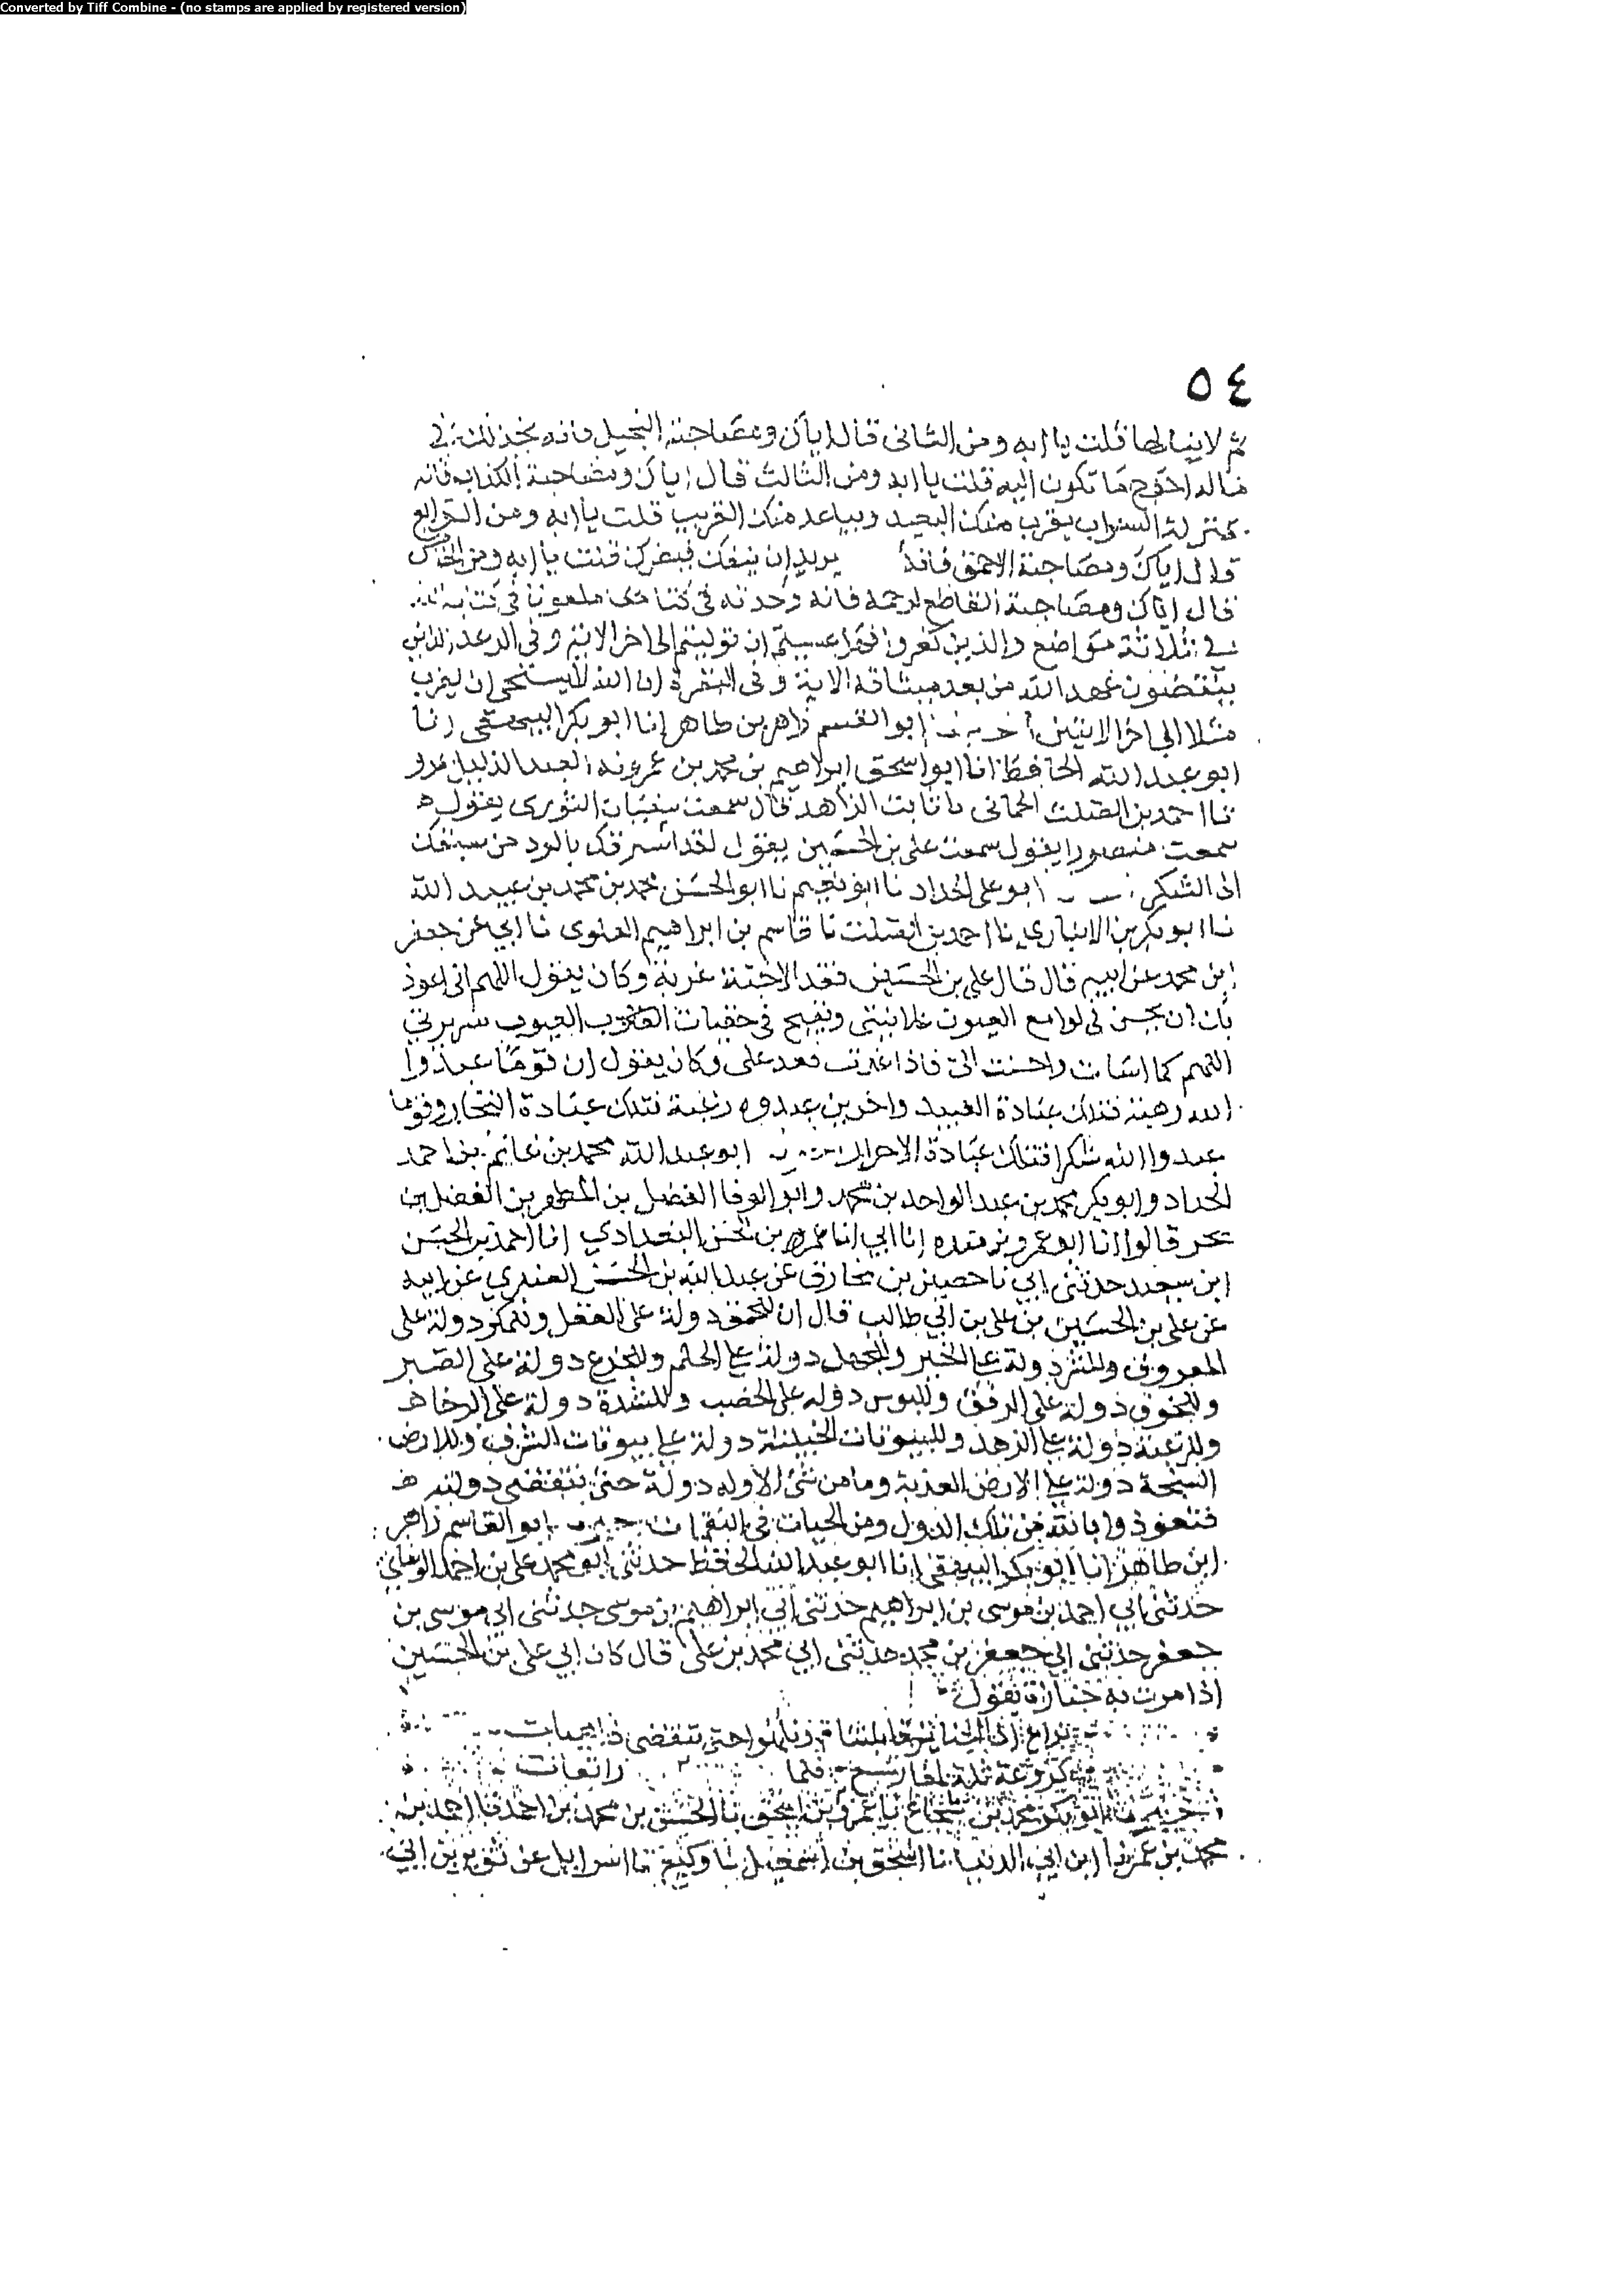 Converted by Tiff Combine - (no stamps are applied by registered version)
٥٤
ثم لا ينالها قلت يا ابه ومن الثانى قال اياك ومصاحبة البخيل فانه يخذلك فى
ماله احوج ما تكون اليه قلت يا ابه ومن الثالث قال اياك ومصاحبة الكذاب فانه
بمنزلة السراب يقرب منك البعيد ويباعد منك القريب قلت يا ابه ومن الرابع
قال اياك ومصاحبة الاحمق فانه يريد ان ينفعك فيضرك قلت يا ابه ومن الخامس
قال اياك ومصاحبة القاطع لرحمه فانه وجدته فى كتاب الله ملعونا فى
فى ثلاثة مواضع والذين كفروا فهل عسيتم ان توليتم الى اخر الاية وفى الرعد الذين
ينقضون عهد الله من بعد ميثاقه الاية وفى البقرة ان الله لا يستحى ان يضرب
مثلا الى اخر الايتين ابو القسم زاهر بن طاهر انا ابو بكر البيهقى انا
ابو عبد الله الحافظ انا ابو اسحق ابراهيم بن محمد بن عمرويه العبد الذليل بمرو
نا احمد بن الصلت الحمانى نا ثابت الزاهد قال سمعت سفيان الثورى يقول
سمعت منصورا يقول سمعت على بن الحسين يقول لقد استرقك بالود من سبقك
الى الشكر ابو على الحداد نا ابو نعيم نا ابو الحسن محمد بن محمد بن عبيد الله
نا ابو بكر بن الانبارى نا احمد بن الصلت نا قاسم بن ابراهيم العلوى نا ابى عن جعفر
ابن محمد عن ابيه قال قال على بن الحسين فقد الاحبة غربة وكان يقول اللهم انى اعوذ
بك ان تحسن فى لوامع العيون علانيتى وتقبح فى خفيات العيوب سريرتى
اللهم كما اسات واحسنت الى فاذا عدت فعد على وكان يقول ان قوما عبدوا
الله رهبة فتلك عبادة العبيد واخرين عبدوه رغبة فتلك عبادة التجار وقوما
عبدوا الله شكرا فتلك عبادة الاحرار ابو عبد الله محمد بن غانم بن احمد
الحداد وابو بكر محمد بن عبد الواحد بن محمد وابو الوفا الفضل بن المطهر بن الفضل بن
بحر قالوا انا ابو عمرو بن منده انا ابى انا بن الحسن البغدادي انا احمد بن الحسن
ابن سعيد حدثنى ابى نا حصين بن مخارق عن عبد الله بن الحسن العنبري عن ابيه
عن على بن الحسين بن على بن ابى طالب قال ان للحمق دولة على العقل وللمنكر دولة على
المعروف وللشر دولة على الخير وللجهل دولة على الحلم وللجزع دولة على الصبر
وللخرق دولة على الرفق وللبوس دولة على الخصب وللشدة دولة على الرخا
وللرغبة دولة على الزهد وللبيوتات الخبيثة دولة على بيوتات الشرف وللارض
السبخة دولة على الارض العذبة وما من شئ الا وله دولة حتى تنقضى دولته
فتعوذوا بالله من تلك الدول ومن الحيات فى النقمات ابو القاسم زاهر
ابن طاهر انا ابو بكر البيهقى انا ابو عبد الله الحافظ حدثنى ابو محمد على بن احمد
حدثنى ابى احمد بن موسى بن ابراهيم حدثنى ابى ابراهيم بن موسى حدثنى ابى موسى بن
جعفر حدثنى ابى جعفر بن محمد حدثنى ابى محمد بن على قال كان ابى على بن الحسين
اذا مرت به جنازة يقول
نراع اذا الجنايز قابلتنا ونلهوا حتى تنقضى ذاهبات
كروعة ثلة لمغار سبع فلما راتعات
ابو بكر محمد بن شجاع نا عمرو بن اسحق نا الحسن بن محمد بن احمد نا احمد بن
محمد بن عمر نا ابن ابى الدنيا نا اسحق بن اسمعيل نا وكيع نا اسرايل عن ثوير بن ابى